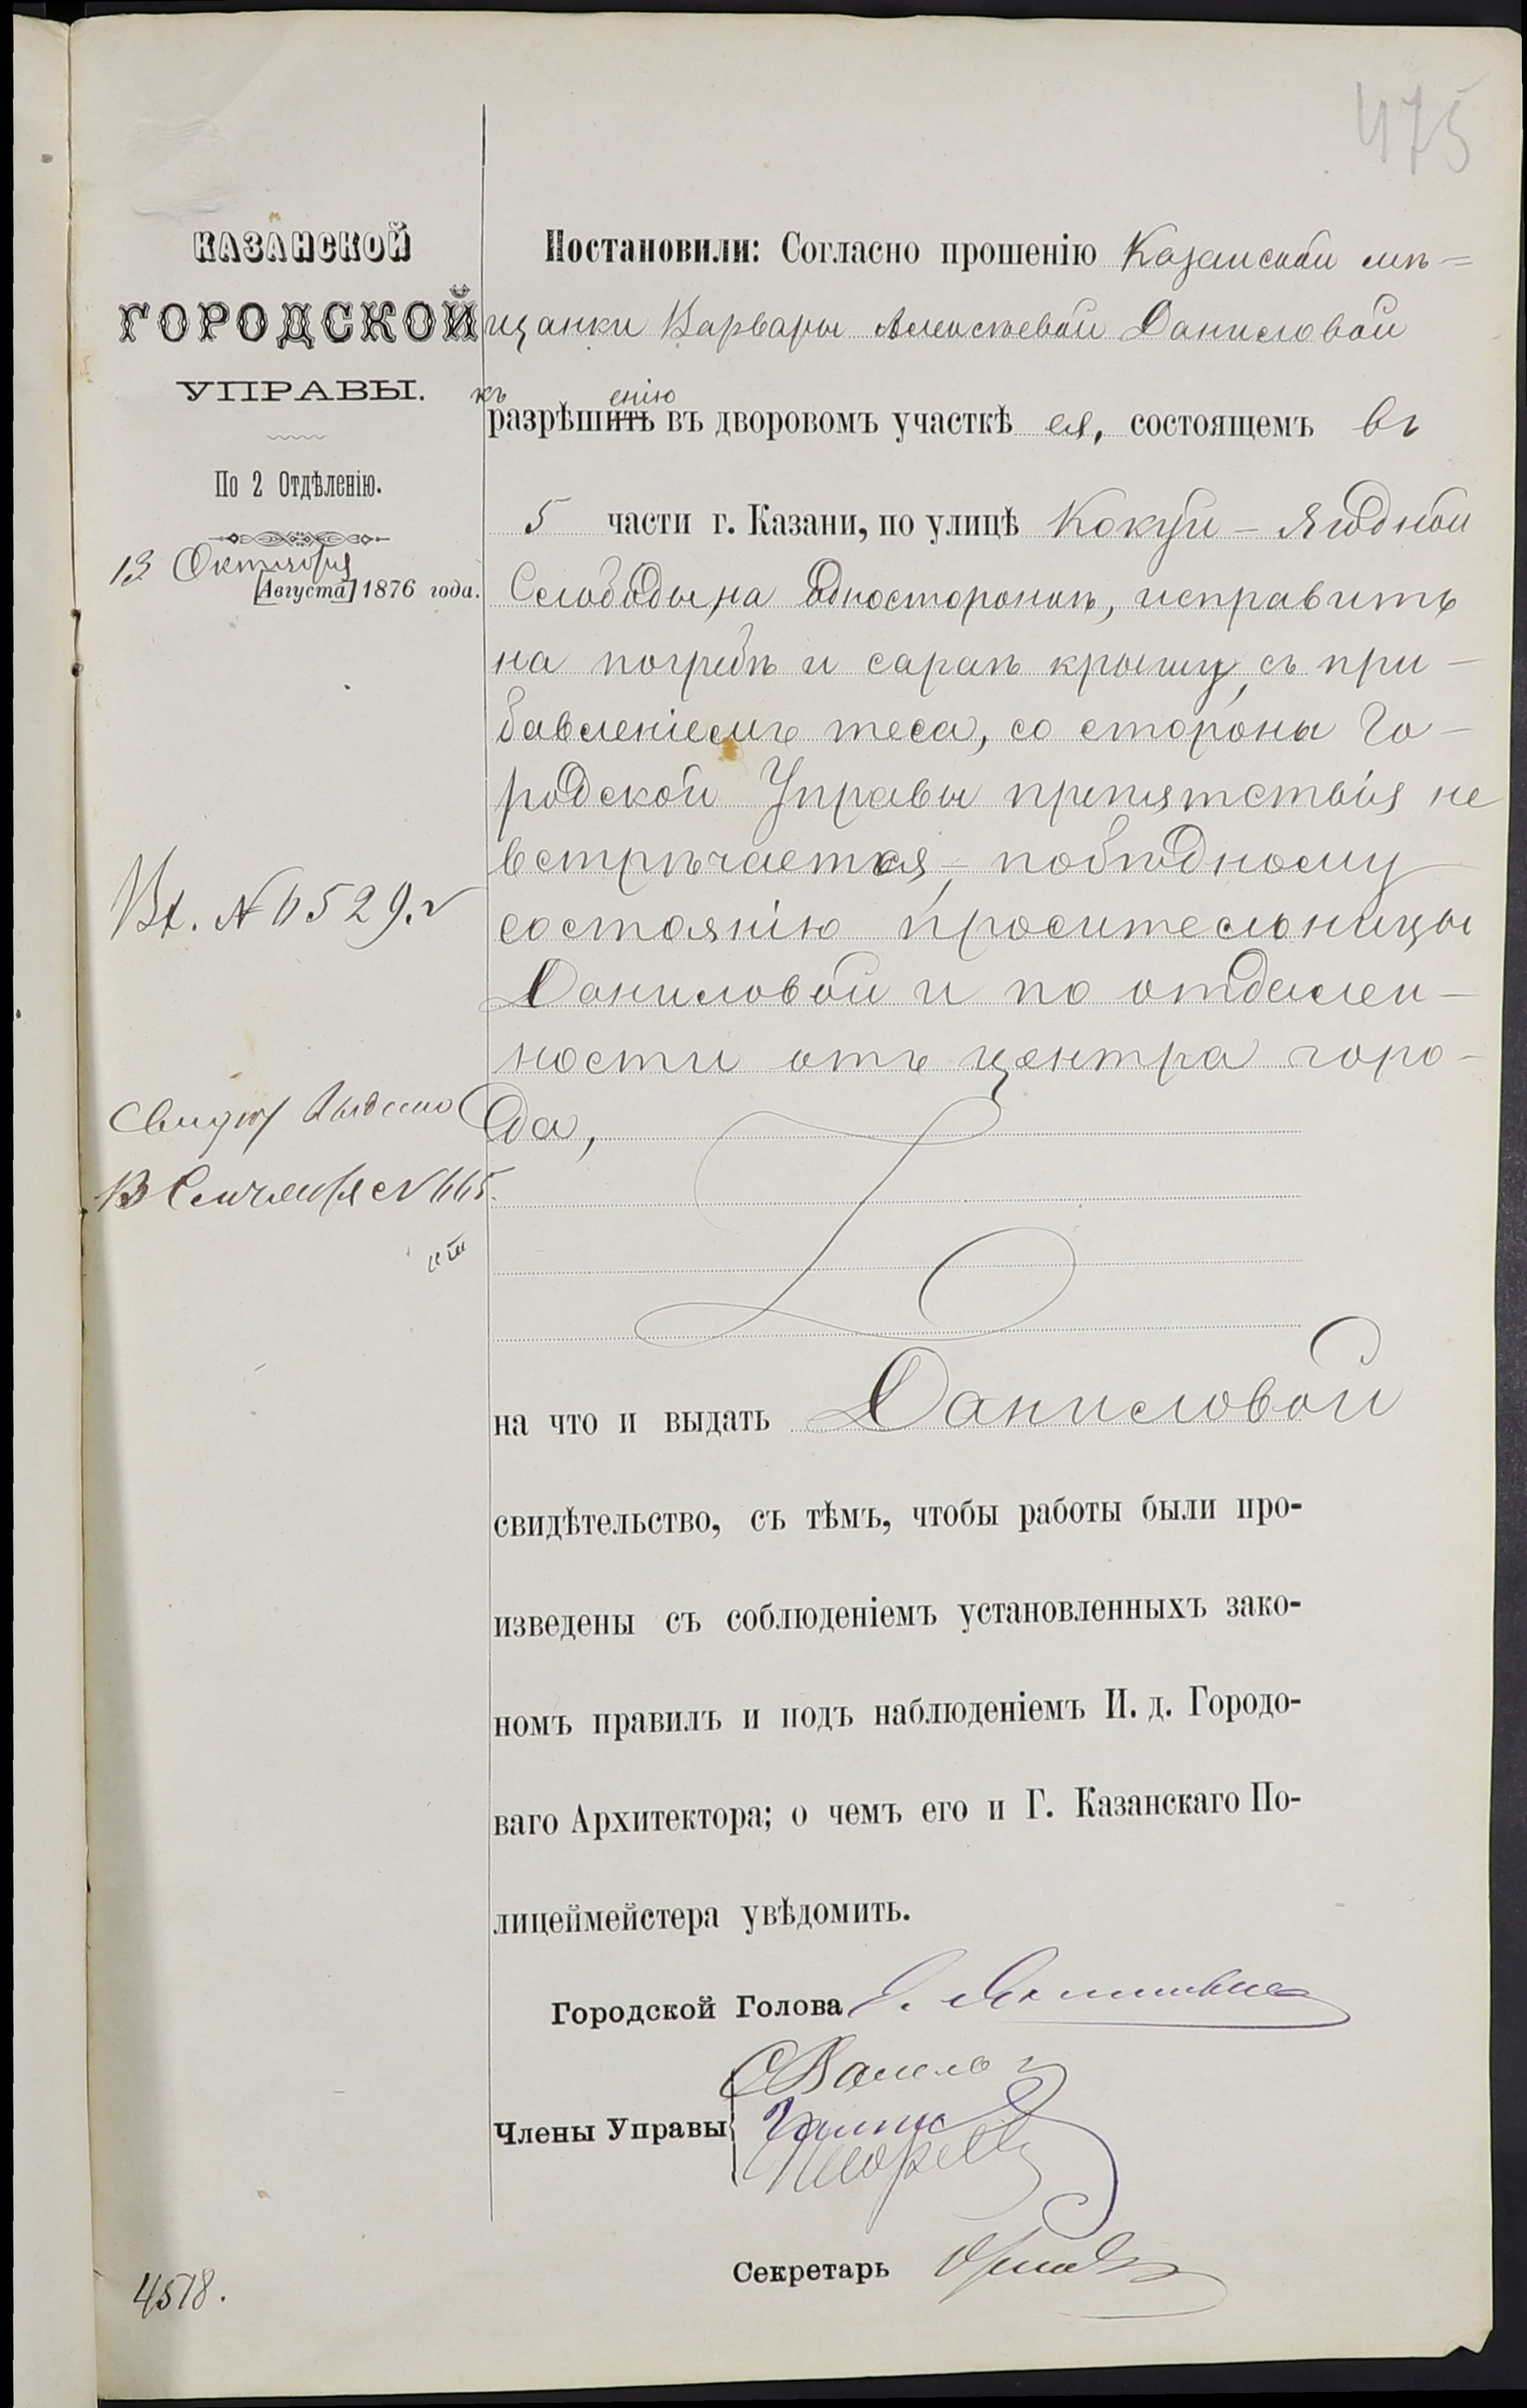 475
КАЗАНСКОЙ
ГОРОДСКОЙ
УПРАВЫ.
По 2 Отдѣленію.
13 Октября
[Августа] 1876 года.
Вх. № 6529.
выдано
№ 665.
4518.
Постановили: Согласно прошенію Казанской мѣ=
щанки Варвары Алексѣевой Даниловой
къ разрѣшить енію въ дворовомъ участкѣ ея, состоящемъ въ
5 части г. Казани, по улицѣ Кокуй - Ягодной
Слободы, на односторонкѣ, исправить
на погребѣ и сараѣ крышу, съ при-
бавленіемъ теса, со стороны Го-
родской Управы препятствія не
встрѣчается, по бѣдному
состоянію просительницы
Даниловой и по отдален-
ности отъ центра горо-
да,
на что и выдать Даниловой
свидѣтельство, съ тѣмъ, чтобы работы были про-
изведены съ соблюденіемъ установленныхъ зако-
номъ правилъ и подъ наблюденіемъ И. д. Городо-
ваго Архитектора; о чемъ его и Г. Казанскаго По-
лицеймейстера увѣдомить.
Городской Голова
Члены Управы
Секретарь